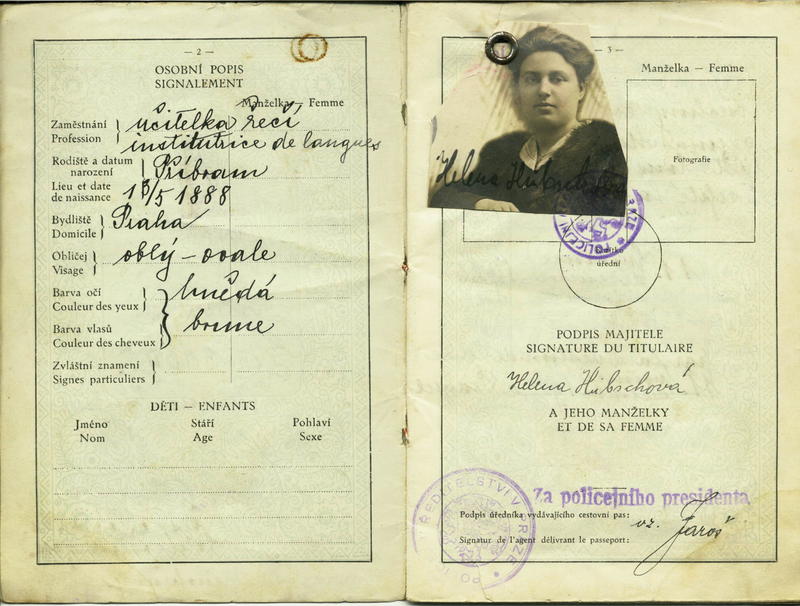 — 2 —
OSOBNÍ POPIS
SIGNALEMENT
Manželka – Femme
Zaměstnání
Profession
učitelka řečí
institutrice de langues
Rodiště a datum
narození
Lieu et date
de naissance
Příbram
13/5 1888
Bydliště
Domicile
Praha
Obličej
Visage
oblý – ovale
Barva očí
Couleur des yeux
hnědá
Barva vlasů
Couleur des cheveux
brune
Zvláštní znamení
Signes particuliers
DĚTI – ENFANTS
Jméno Stáří Pohlaví
Nom Age Sexe
— 3 —
Manželka – Femme
Fotografie
Helena Hübschová
úřední
PODPIS MAJITELE
SIGNATURE DU TITULAIRE
Helena Hübschová
A JEHO MANŽELKY
ET DE SA FEMME
Za policejního presidenta
Podpis úředníka vydávajícího cestovní pas:
vz. Jaroš
Signatur de l'agent délivrant le passeport:
ŘEDITELSTVÍ V PRAZE